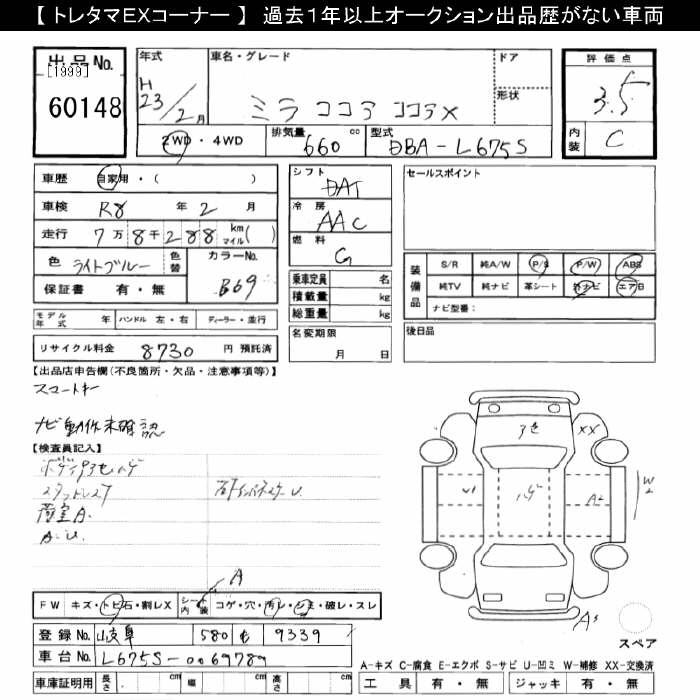 【 トレタマEXコーナー 】 過去1年以上オークション出品歴がない車両
出品No.
[1999]
60148
年式
H
23/2月
車名・グレード
ミラ ココア ココアX
ドア
形状
評価点
3.5
内装
C
2WD・4WD
排気量
660 cc
型式
DBA-L675S
車歴 自家用・( )
車検 R8 年 2 月
走行 7万8千288 km マイル( )
色 ライトブルー 色替
カラーNo.
B69
保証書 有・無
シフト
DAT
冷房
AAC
燃料
G
乗車定員 名
積載量 kg
総重量 kg
名変期限
月 日
セールスポイント
装備品
S/R 純A/W P/S P/W ABS
純TV 純ナビ 革シート 社外ナビ エアB
ナビ型番:
後日品
モデル年式 年 ハンドル 左・右 ディーラー・並行
リサイクル料金 8730 円 預託済
【出品店申告欄(不良箇所・欠品・注意事項等)】
スマートキー
ナビ動作未確認
【検査員記入】
ボディ
スタットレス
荷室A.
A.U.
A
FW キズ・トビ石・割レX
シート内装 コゲ・穴・汚レ・シミ・破レ・スレ
登録No. 岐阜 580 9339
車台No. L675S-0069789
車庫証明用 長さ cm 幅 cm 高さ cm
XX
U1
ハゲ
A2
W2
A3
スペア
A-キズ C-腐食 E-エクボ S-サビ U-凹ミ W-補修 XX-交換済
工具 有・無 ジャッキ 有・無